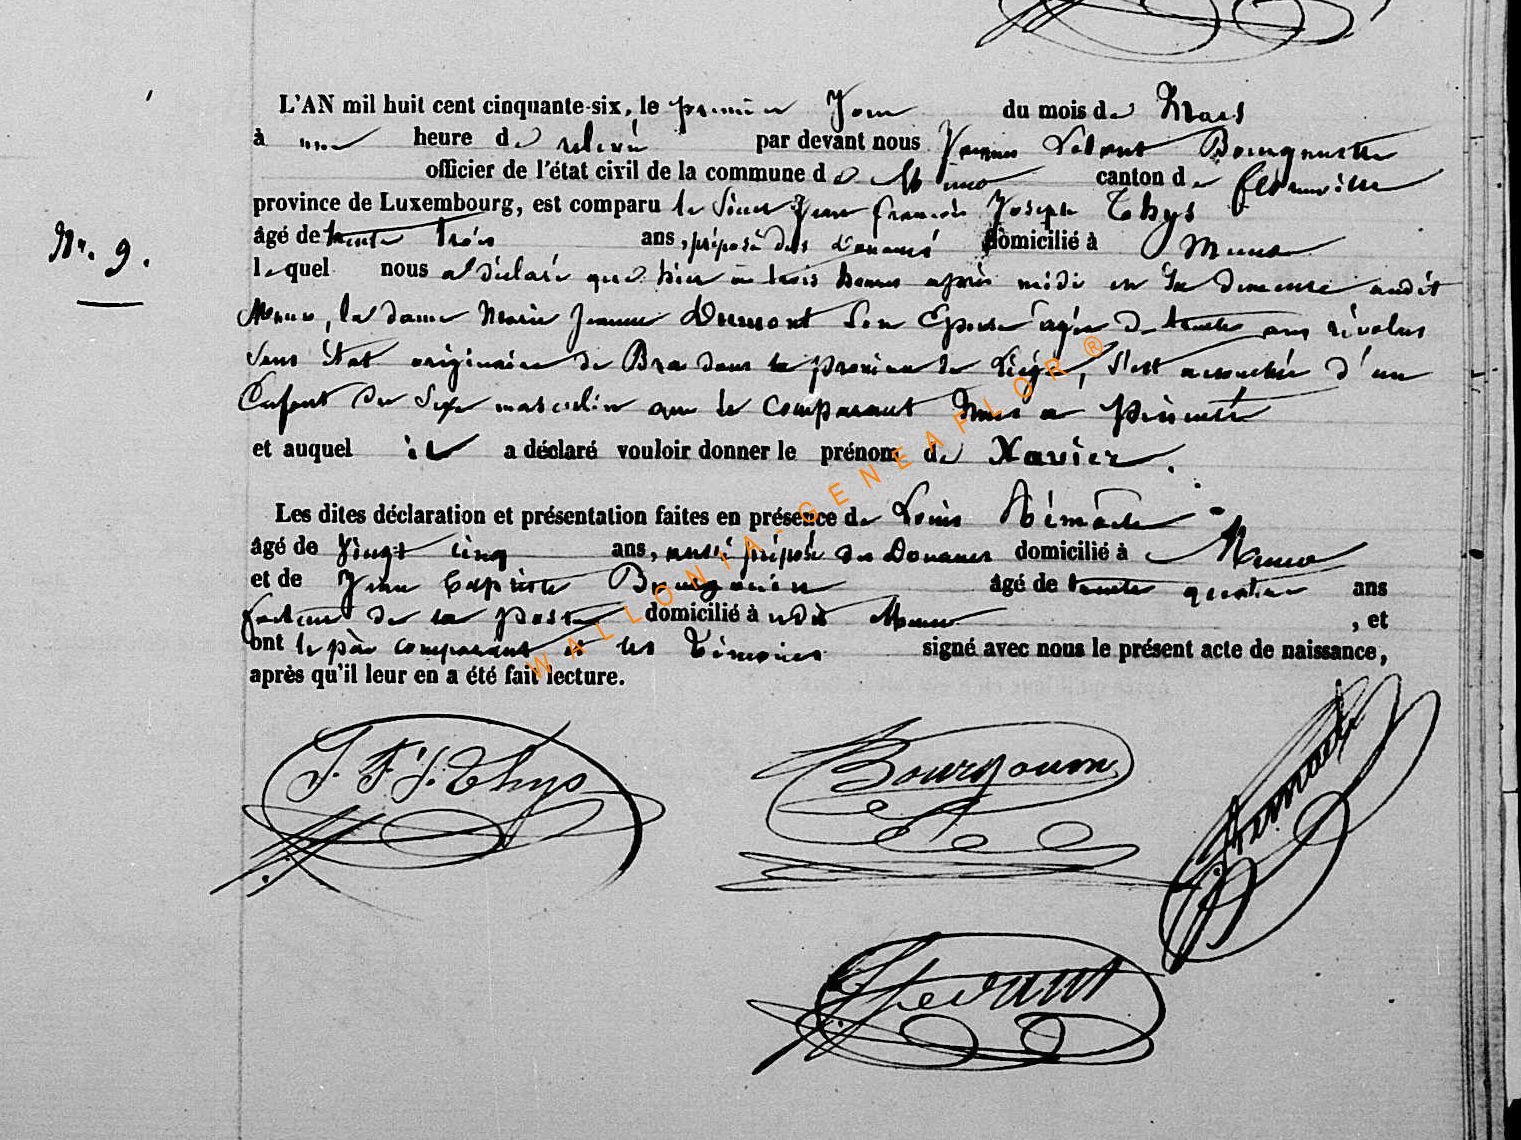 L'AN mil huit cent cinquante-six, le premier Jour du mois de Mars
à une heure de relevée par devant nous Lebrut Bourgmestre
officier de l'état civil de la commune de Muno canton de Florenville
province de Luxembourg, est comparu le Sieur Jean françois Joseph Thys
âgé de trente trois ans, préposé des douanes domicilié à Muno
lequel nous a déclaré que hier à trois heures après midi en Sa demeure audit
Muno, la dame Marie Jeanne Dumont Son Epouse âgée de trente ans révolus
Sans état originaire de Bra dans la province de Liège, s'est accouchée d'un
Enfant du Sexe masculin que le comparant Nous a présenté
et auquel il a déclaré vouloir donner le prénom de Xavier.
Les dites déclaration et présentation faites en présence de Louis Hémache
âgé de Vingt cinq ans, aussi préposé des Douanes domicilié à Muno
et de Jean Baptiste Bourgouin âgé de trente quatre ans
facteur de la poste domicilié à udit Muno, et
ont le père comparant et les Témoins signé avec nous le présent acte de naissance,
après qu'il leur en a été fait lecture.
Nr. 9.
J. F. J. Thys
Bourgouin
WALLONIA-GENEAFLOR ®